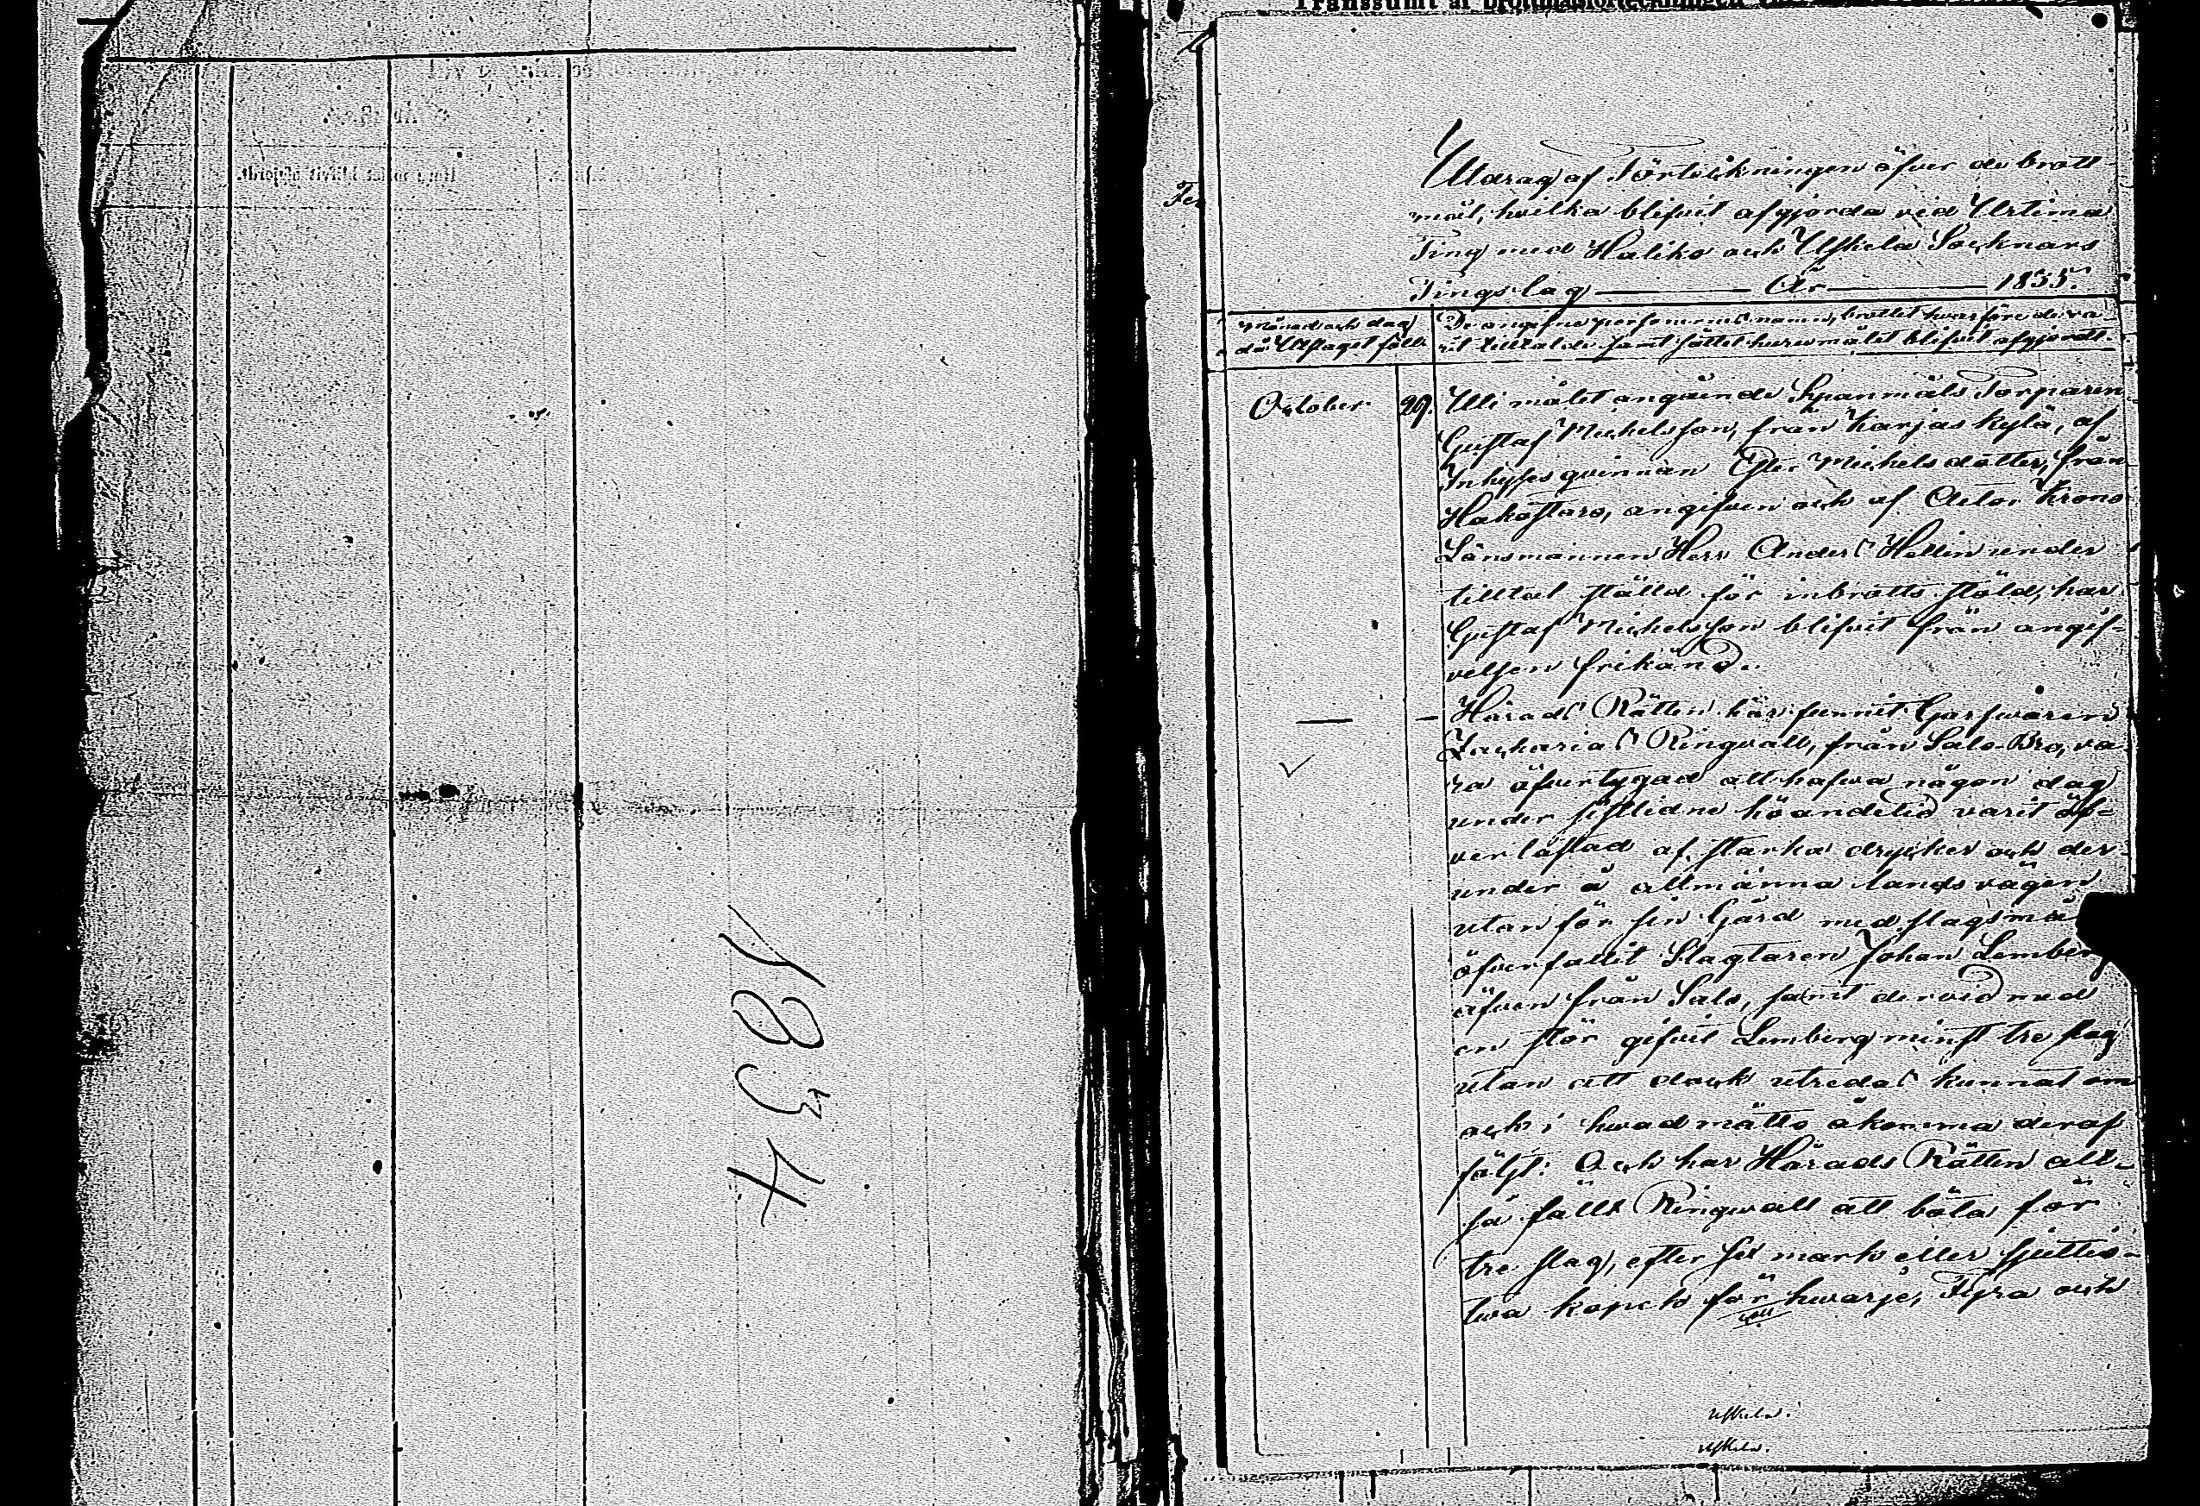 1834
Transsumt af brottmålsförteckningen
Utdrag af Förteckningen öfver de brott-
mål, hvilka blifvit afgjorda vid Urtima
Ting med Haliko och Uskela Socknars
Tingslag — År — 1835.
Månad och dag
då Utslaget föll.
De angifne personernes namn, brottet hvarföre de va-
rit tilltalde samt sättet huru målet blifvit afgjordt.
October 29. Uti målet angående Spanmåls Torparen
Gustaf Michelsson, från Karjas kylä, af
Inhysesqvinnan Michelsdotter, från
angifven och af Actor Krono
Länsmannen Herr Anders Hellin under
tilltal ställd för inbrotts stöld, har
Gustaf Michelsson blifvit från angif-
velsen frikänd.
— — Härads Rätten har funnit Garfvaren
Zacharias Ringvall, från Salo Bro, va-
ra öfvertygad att hafva någon dag
under sistledne höandetid varit öf-
verlastad af starka drycker och der-
under å allmänna landsvägen
utan för sin Gård med slagsmå
öfverfallit Slagtaren Johan Lemberg
äfven från Salo, samt dervid med
en stör gifvit Lemberg minst tre slag
utan att dock utredas kunnat om
och i hvad måtto åkomma deraf
följt: Och har Härads Rätten allt-
så fällt Ringvall att böta för
tre slag, efter sex mark eller sjuttio-
två kopek för hvarje, Fyra och
Uskela.
Uskela.